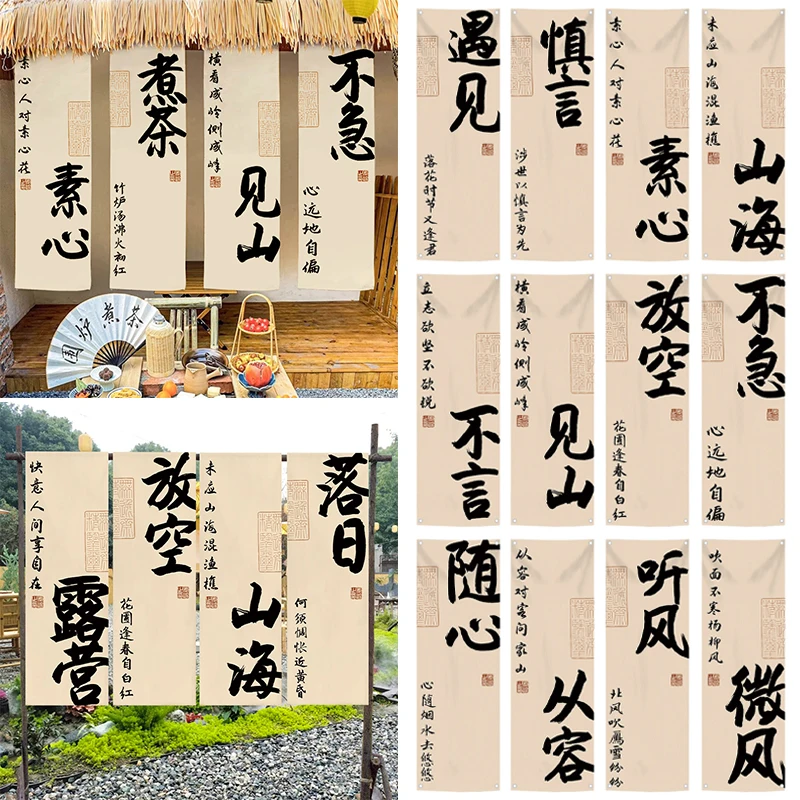 素心人对素心花
素心
煮茶
竹炉汤沸火初红
横看成岭侧成峰
见山
不急
心远地自偏
围炉煮茶
遇见
落花时节又逢君
慎言
涉世以慎言为先
素心人对素心花
素心
未应山海混渔樵
山海
立志欲坚不欲锐
不言
横看成岭侧成峰
见山
放空
花圃逢春自白红
不急
心远地自偏
快意人间享自在
露营
放空
花圃逢春自白红
未应山海混渔樵
山海
落日
何须惆怅近黄昏
随心
心随烟水去悠悠
从容对客问家山
从容
听风
北风吹雁雪纷纷
吹面不寒杨柳风
微风